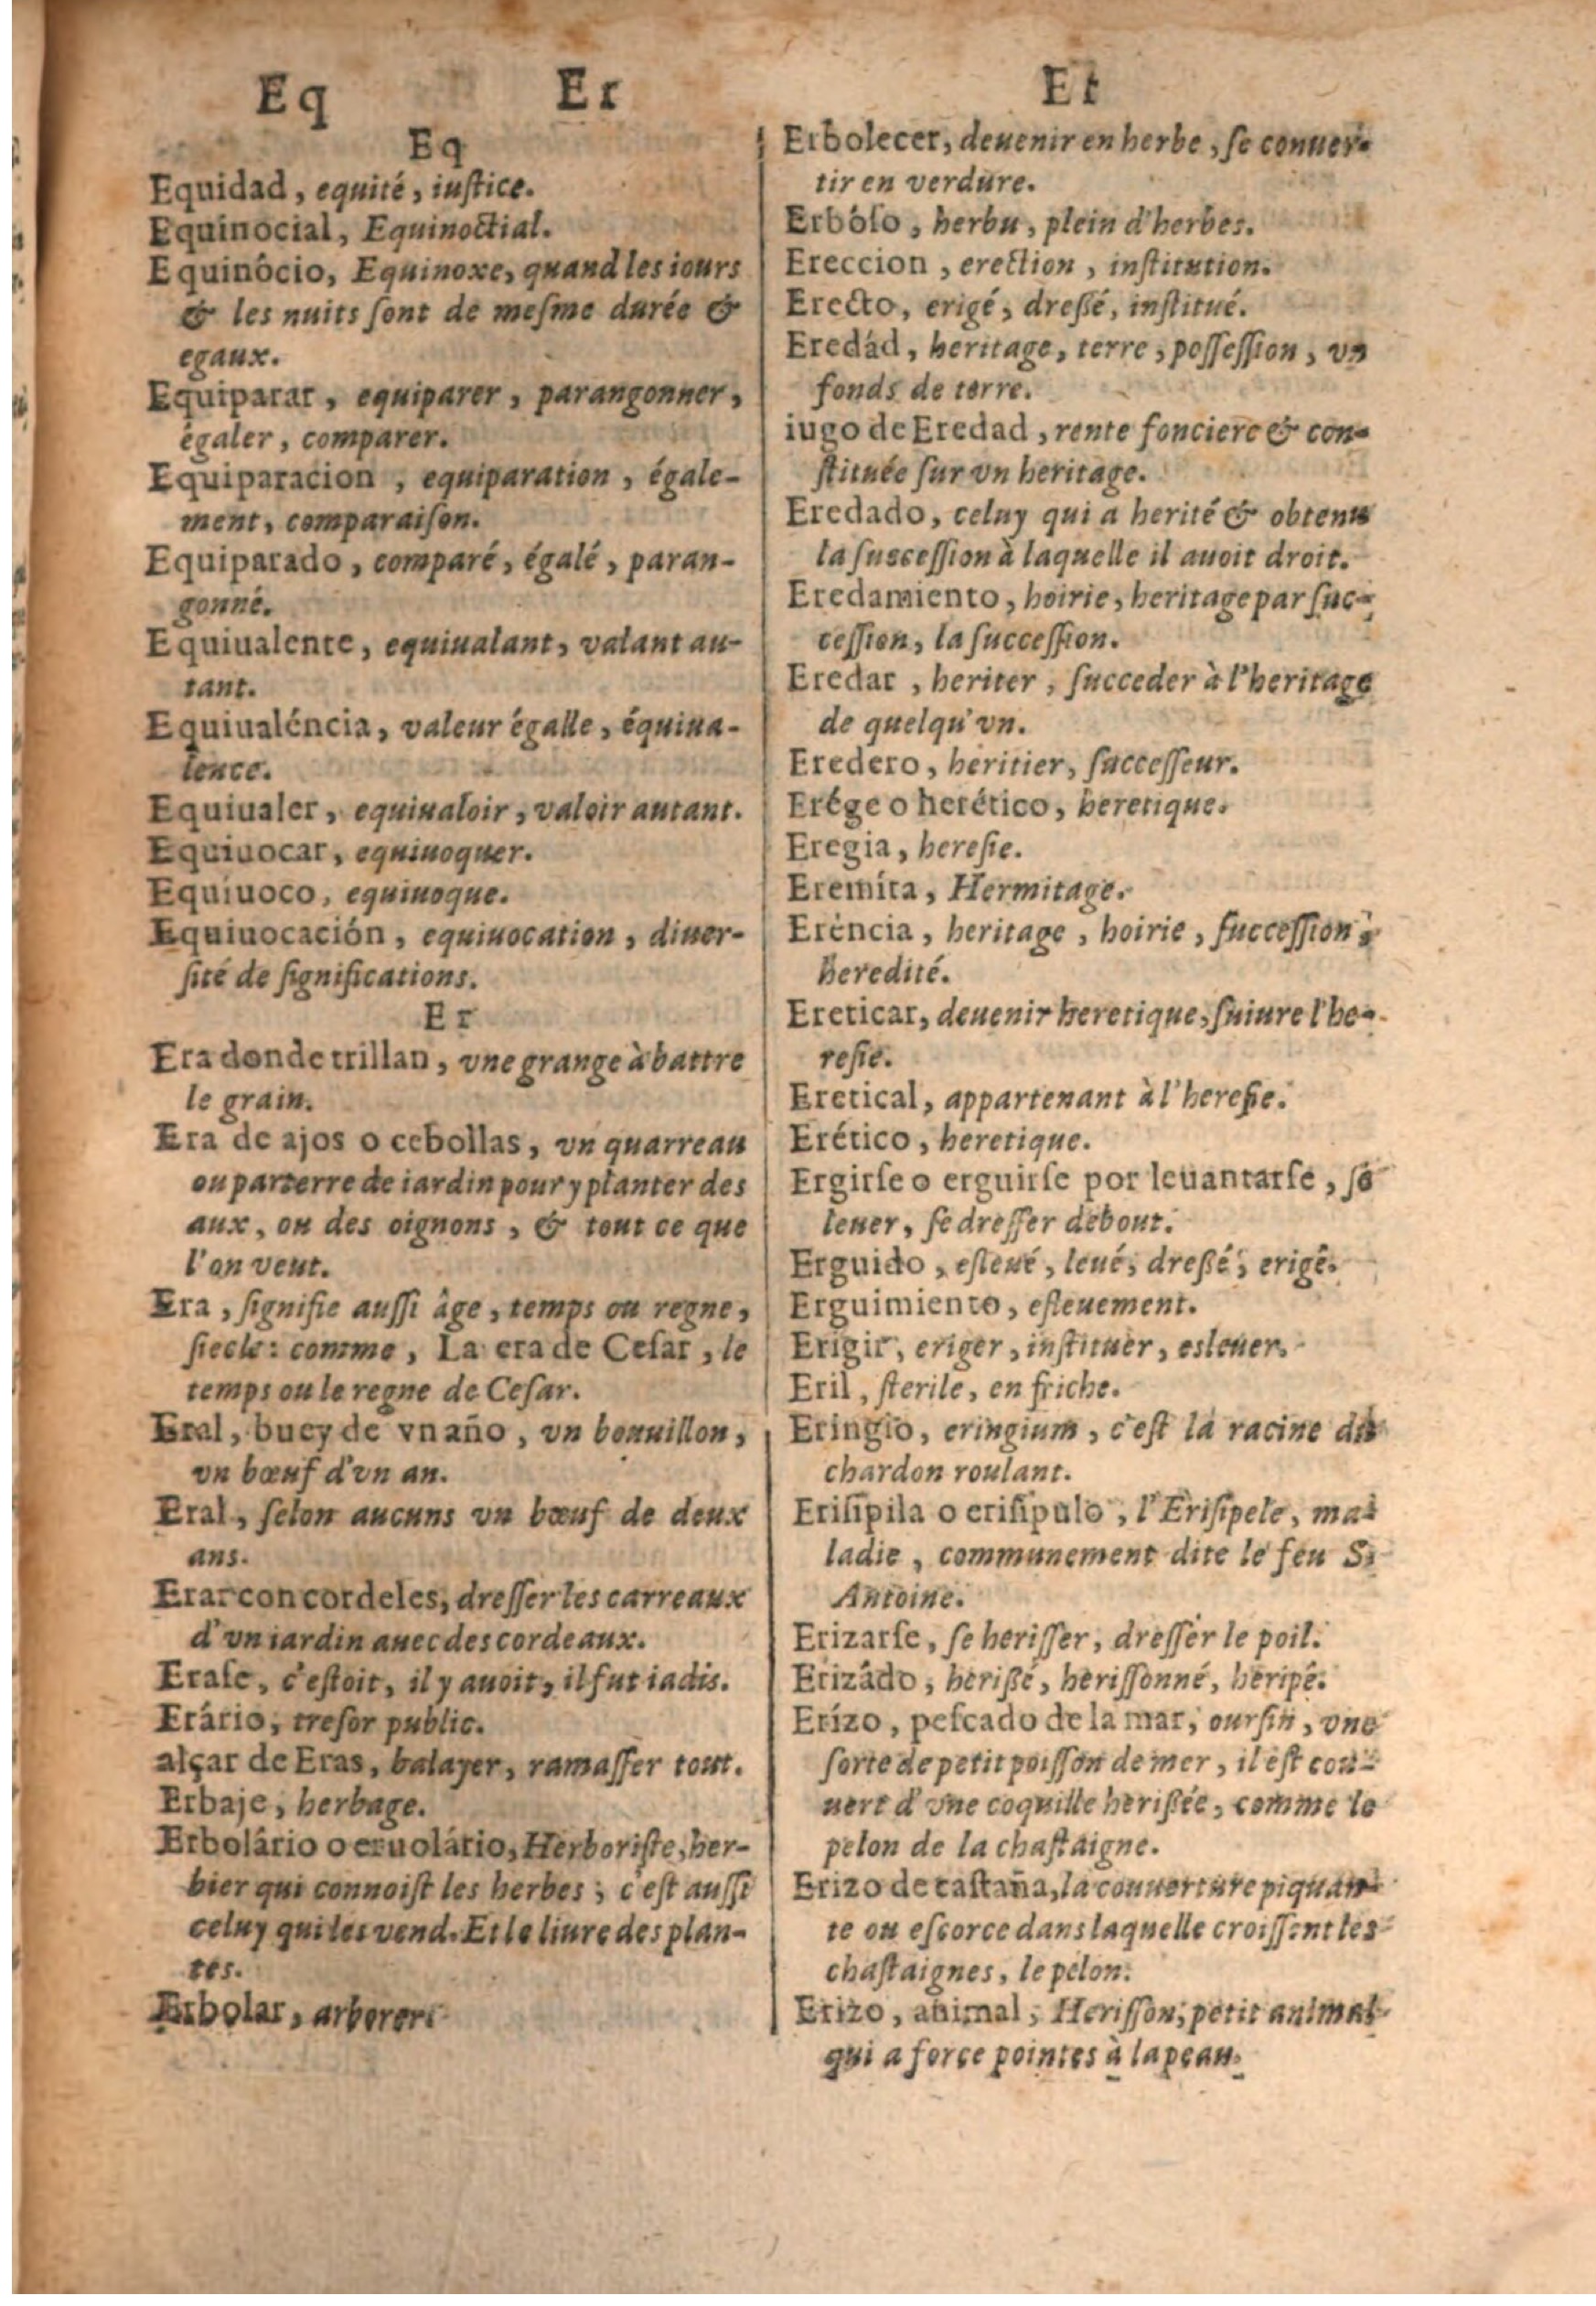 Eq Er
Eq
Equidad, equité, iuſtice.
Equinocial, Equinoctial.
Equinócio, Equinoxe, quand les iours
& les nuits ſont de meſme durée &
egaux.
Equiparar, equiparer, parangonner,
égaler, comparer.
Equiparacion, equiparation, égale-
ment, comparaiſon.
Equiparado, comparé, égalé, paran-
gonné.
Equiualente, equiualant, valant au-
tant.
Equiualéncia, valeur égalle, équiua-
lence.
Equiualer, equiualoir, valoir autant.
Equiuocar, equiuoquer.
Equíuoco, equiuoque.
Equiuocación, equiuocation, diuer-
ſité de ſignifications.
Er
Era donde trillan, vne grange à battre
le grain.
Era de ajos o cebollas, vn quarreau
ou parterre de iardin pour y planter des
aux, ou des oignons, & tout ce que
l'on veut.
Era, ſignifie auſſi âge, temps ou regne,
ſiecle: comme, La era de Ceſar, le
temps ou le regne de Ceſar.
Eral, buey de vn año, vn bouuillon,
vn bœuf d'vn an.
Eral, ſelon aucuns vn bœuf de deux
ans.
Erar con cordeles, dreſſer les carreaux
d'vn iardin auec des cordeaux.
Eraſe, c'eſtoit, il y auoit, il fut iadis.
Erário, treſor public.
alçar de Eras, balayer, ramaſſer tout.
Erbaje, herbage.
Erbolário o eruolário, Herboriſte, her-
bier qui connoiſt les herbes; c'eſt auſſi
celuy qui les vend. Et le liure des plan-
tes.
Erbolar, arborer.
Er
Erbolecer, deuenir en herbe, ſe conuer-
tir en verdure.
Erbóſo, herbu, plein d'herbes.
Ereccion, erection, inſtitution.
Erecto, erigé, dreßé, inſtitué.
Eredád, heritage, terre, poſſeſſion, vn
fonds de terre.
iugo de Eredad, rente fonciere & con-
ſtituée ſur vn heritage.
Eredado, celuy qui a herité & obtenu
la ſuscesſion à laquelle il auoit droit.
Eredamiento, hoirie, heritage par ſuc-
ceſſion, la ſucceſſion.
Eredar, heriter, ſucceder à l'heritage
de quelqu'vn.
Eredero, heritier, ſucceſſeur.
Erége o herético, heretique.
Eregia, hereſie.
Eremíta, Hermitage.
Eréncia, heritage, hoirie, ſucceſſion,
heredité.
Ereticar, deuenir heretique, ſuiure l'he-
reſie.
Eretical, appartenant à l'hereſie.
Erético, heretique.
Ergirſe o erguirſe por leuantarſe, ſe
leuer, ſe dreſſer debout.
Erguido, esleué, leué, dreßé, erigé.
Erguimiento, esleuement.
Erigir, eriger, inſtituer, esleuer.
Eril, ſterile, en friche.
Eringio, eringium, c'eſt la racine du
chardon roulant.
Eriſipila o eriſipulo, l'Eriſipele, ma-
ladie, communement dite le feu S.
Antoine.
Erizarſe, ſe heriſſer, dreſſer le poil.
Erizádo, herißé, heriſſonné, heripé.
Erízo, peſcado de la mar, ourſin, vne
ſorte de petit poiſſon de mer, il eſt cou-
uert d'vne coquille herißée, comme le
pelon de la chaſtaigne.
Erizo de caſtaña, la couuerture piquan-
te ou eſcorce dans laquelle croiſſent les
chaſtaignes, le pelon.
Erizo, animal, Heriſſon, petit animal
qui a force pointes à la peau.